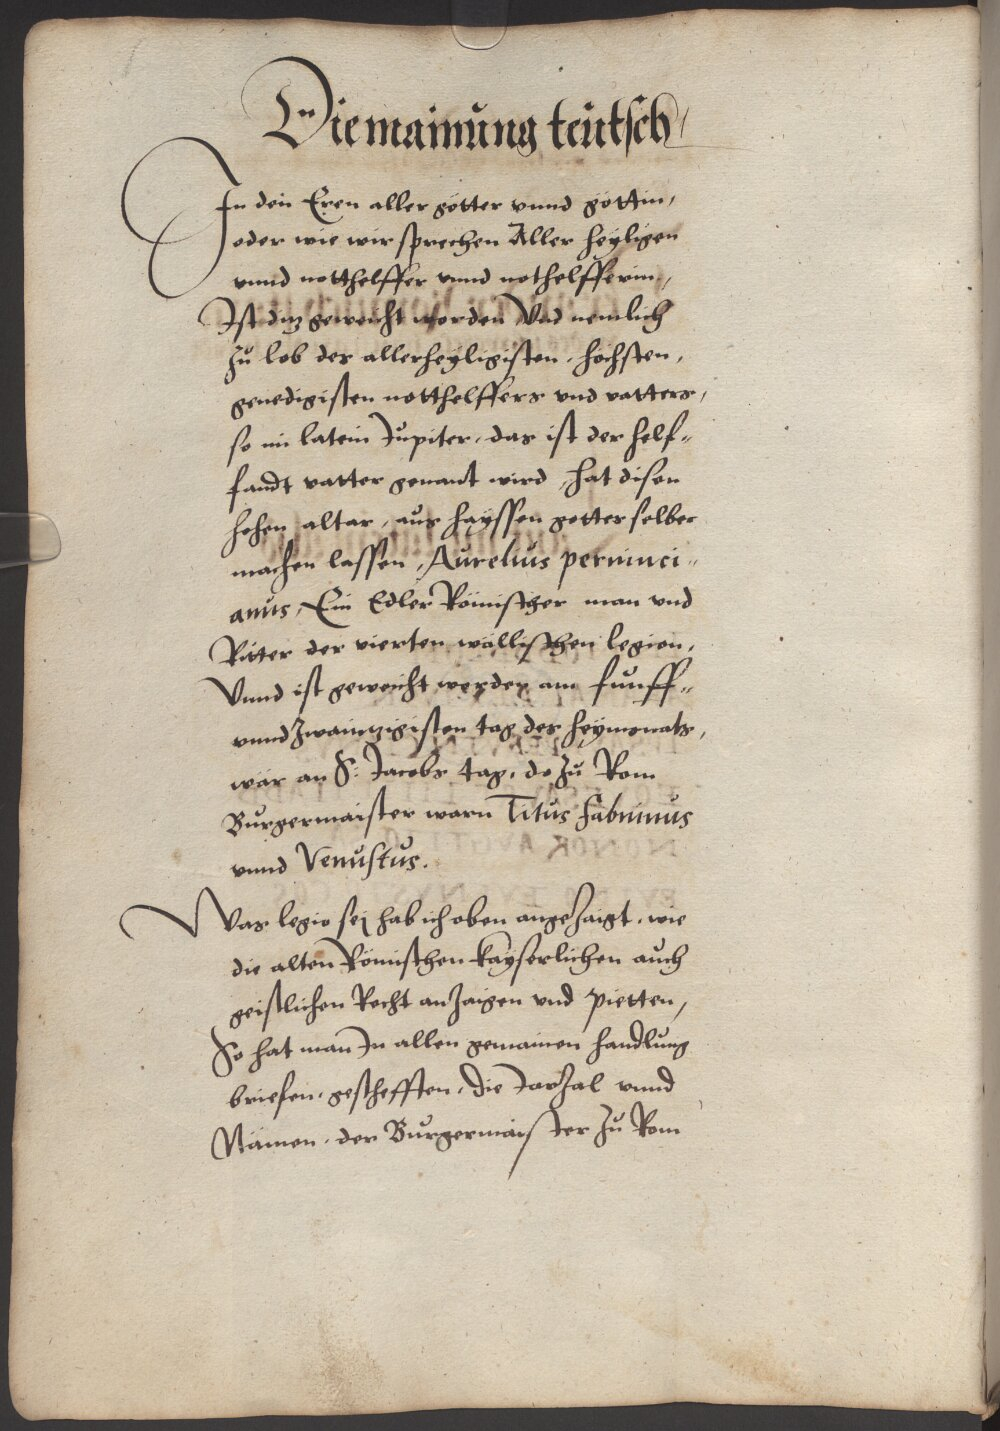 Die mainung teütsch
In den Eren aller götter vnnd göttin,
oder wie wir sprechen Aller heyligen
vnnd notthelffer vnnd nothelfferin,
Ist ditz geweicht worden Vnd nemlich
zu lob des allerheyligisten, höchsten,
genedigisten notthelffers vnd vatters,
so im latein Jupiter, das ist der helf-
fandt vatter genant wird, hat disen
hohen altar, aus hayssen gotter selber
machen lassen, Aurelius peruinci-
anus, Ein Edler Römischer man vnd
Ritter der vierten wällischen legion,
Vnnd ist geweicht worden am funff-
vnnd zwaintzigisten tag des heymonats,
war an S: Jacobs tag, do zu Rom
Burgermaister warn Titus fabininus
vnnd Venustus.
Was legio sej hab ich oben angezaigt, wie
die alten Römischen kayserlichen auch
geistlichen Recht anzaigen vnd pietten,
So hat man In allen gemainen handlung
briefen, geschefften, die Jarzal vnnd
Namen, der Burgermaister zu Rom